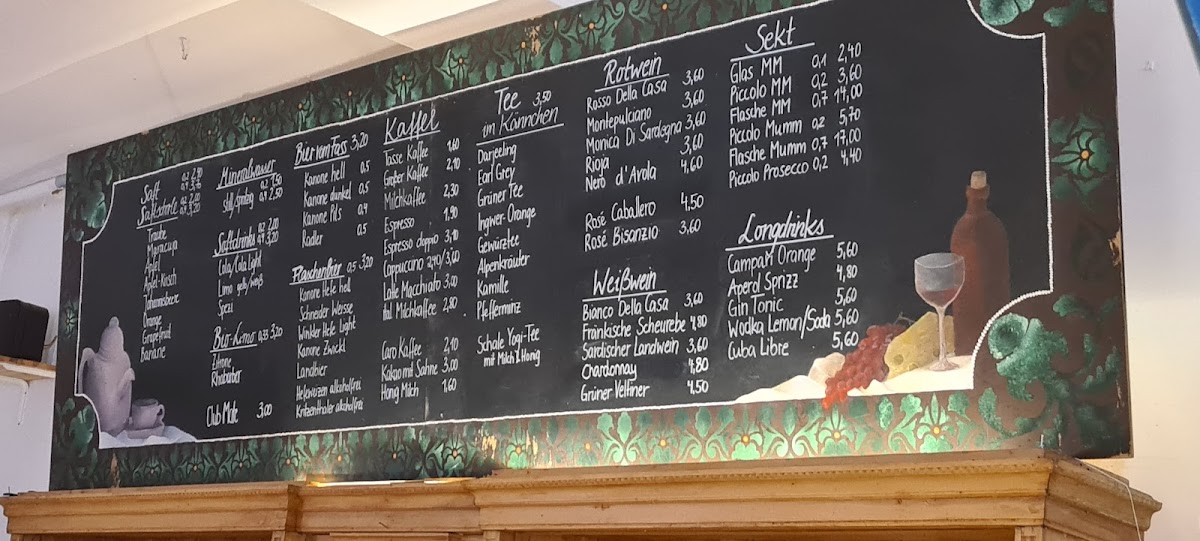 Saft 0,2 2,90
0,4 3,70
Saftschorle 0,2 2,00
0,4 3,20
Traube
Maracuja
Apfel
Apfel-Kirsch
Johannisbeer
Orange
Grapefruit
Banane
Mineralwasser
still/spritzig 0,2 1,50
0,4 2,50
Softdrinks 0,2 2,00
0,4 3,20
Cola/Cola Light
Limo gelb/weiß
Spezi
Bio-Limo 0,33 3,20
Zitrone
Rhabarber
Club Mate 3,00
Bier vom Fass 3,20
Kanone hell 0,5
Kanone dunkel 0,5
Kanone Pils 0,4
Radler 0,5
Flaschenbier 0,5 3,20
Kanone Hefe hell
Schneider Weisse
Winkler Hefe Light
Kanone Zwickl
Landbier
Hefeweizen alkoholfrei
Kritzenthaler alkoholfrei
Kaffee
Tasse Kaffee 1,60
Großer Kaffee 2,10
Milchkaffee 2,30
Espresso 1,90
Espresso doppio 3,10
Cappuccino 2,40/3,00
Latte Macchiato 3,00
ital. Milchkaffee 2,80
Caro Kaffee 2,10
Kakao mit Sahne 3,00
Honig Milch 1,60
Tee 3,50
im Kännchen
Darjeeling
Earl Grey
Grüner Tee
Ingwer-Orange
Gewürztee
Alpenkräuter
Kamille
Pfefferminz
Schale Yogi-Tee
mit Milch & Honig
Rotwein
Rosso Della Casa 3,60
Montepulciano 3,60
Monica Di Sardegna 3,60
Rioja 3,60
Nero d'Avola 4,60
Rosé Caballero 4,50
Rosé Bisanzio 3,60
Weißwein
Bianco Della Casa 3,60
Fränkische Scheurebe 4,80
Sardischer Landwein 3,60
Chardonnay 4,80
Grüner Veltiner 4,50
Sekt
Glas MM 0,1 2,40
Piccolo MM 0,2 3,60
Flasche MM 0,7 14,00
Piccolo Mumm 0,2 5,70
Flasche Mumm 0,7 17,00
Piccolo Prosecco 0,2 4,40
Longdrinks
Campari Orange 5,60
Aperol Sprizz 4,80
Gin Tonic 5,60
Wodka Lemon/Soda 5,60
Cuba Libre 5,60